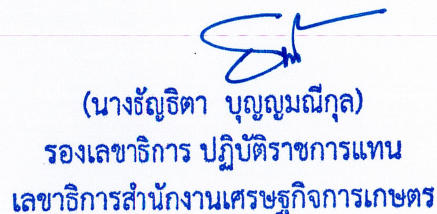 (นางธัญธิตา บุญญมณีกุล)
รองเลขาธิการ ปฏิบัติราชการแทน
เลขาธิการสำนักงานเศรษฐกิจการเกษตร